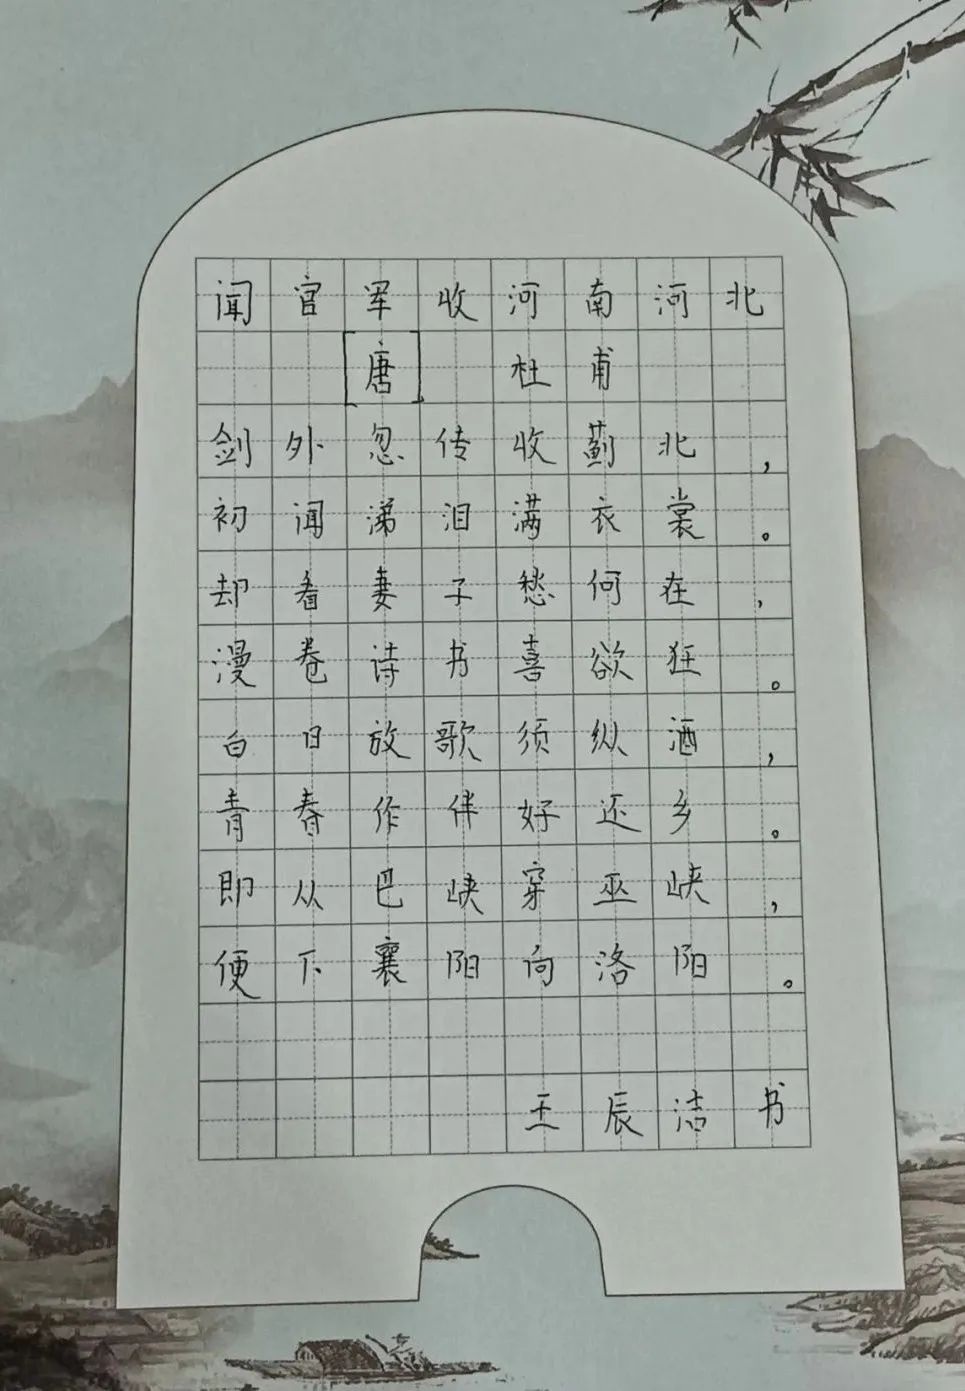 闻官军收河南河北
[唐] 杜甫
剑外忽传收蓟北，
初闻涕泪满衣裳。
却看妻子愁何在，
漫卷诗书喜欲狂。
白日放歌须纵酒，
青春作伴好还乡。
即从巴峡穿巫峡，
便下襄阳向洛阳。
王辰洁书